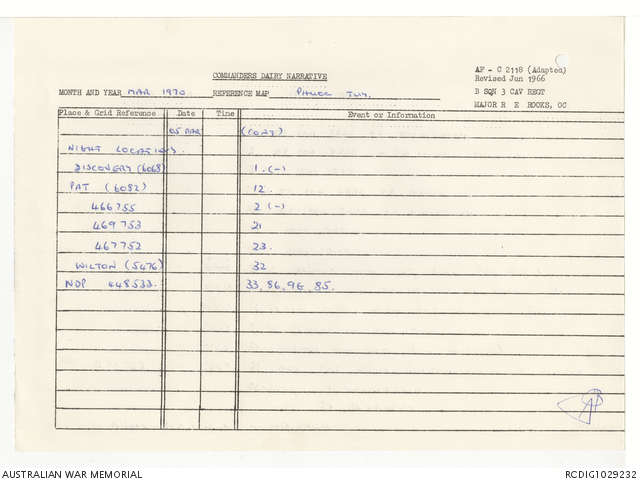 COMMANDERS DAIRY NARRATIVE
AF - C 2118 (Adapted)
Revised Jun 1966
MONTH AND YEAR MAR 1970 REFERENCE MAP PHUOC TUY.
B SQN 3 CAV REGT
MAJOR R E ROOKS, OC
Place & Grid Reference Date Time Event or Information
05 MAR (CONT)
NIGHT LOCATIONS.
DISCOVERY (6068) 1 (-)
PAT (6082) 12.
466755 2 (-)
469753 21
467752 23.
WILTON (5476) 32
NDP 448533. 33, 86, 9E, 85.
AUSTRALIAN WAR MEMORIAL
RCDIG1029232